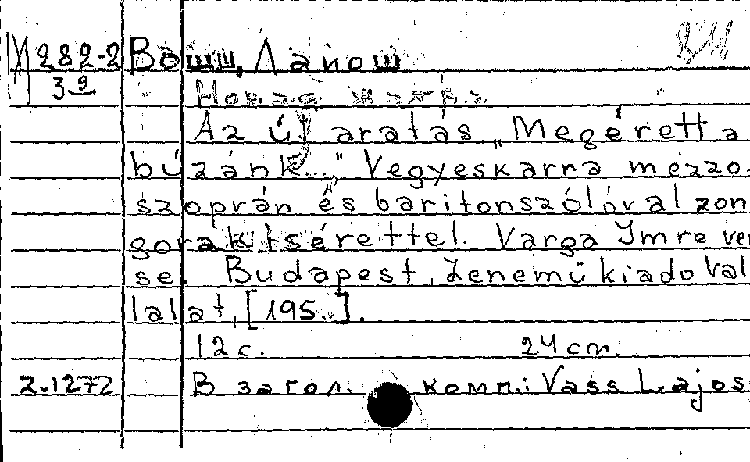 М 282-2 Вошш, Лайош
3⁰
Новая жатва.
Az új aratás „Megérett a
búzánk..." Vegyeskarra mezzo-
szoprán és baritonszólóval zon
gorakisérettel. Varga Imre ver
se. Budapest, Zenemükiado Val
lalat, [195..].
12 с. 24 cm.
2.1272 В загол. комп.: Vass Lajos